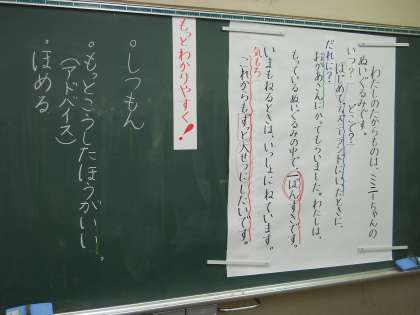 わたしのたからものは、ミニーちゃんの
ぬいぐるみです。
いつ？ どこで？
はじめてディズニーランドにいったときに、
だれに？
おかあさんにかってもらいました。わたしは、
もっているぬいぐるみの中で、一ばんすきです。
いまもねるときは、いっしょにねています。
気もち
これからもずっと大せつにしたいです。
もっとわかりやすく！
・しつもん
・もっとこうしたほうがいい。
（アドバイス）
・ほめる